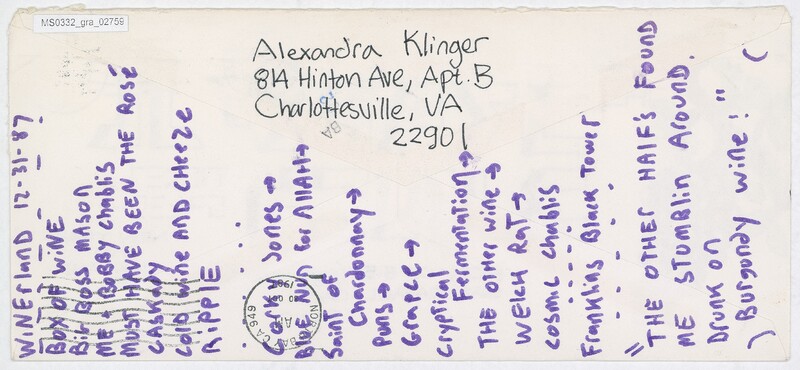 MS0332_gra_02759
Alexandra Klinger
814 Hinton Ave, Apt. B
Charlottesville, VA
22901
WINErland 12-31-87
BOX OF WiNE
Big BOSS MASON
ME + BOBBY Chablis
MUST HAVE BEEN THE Rosé
CASSADY
Cold wine AND CHeeze
RiPPLE
Jones →
BlUE Nun for AllAH →
Saint of
Chardonnay →
Puns →
GRAPLE →
Cryptical
Fermentation →
THE OTHER WiNE →
WELCH RAT →
COSMIC Chablis
Franklins Black Tower
"THE OTHER HAlF's FOUND
ME STUMBLiN AROUND.
Drunk on
Burgundy wine!"
NORTH BAY CA 949
1987